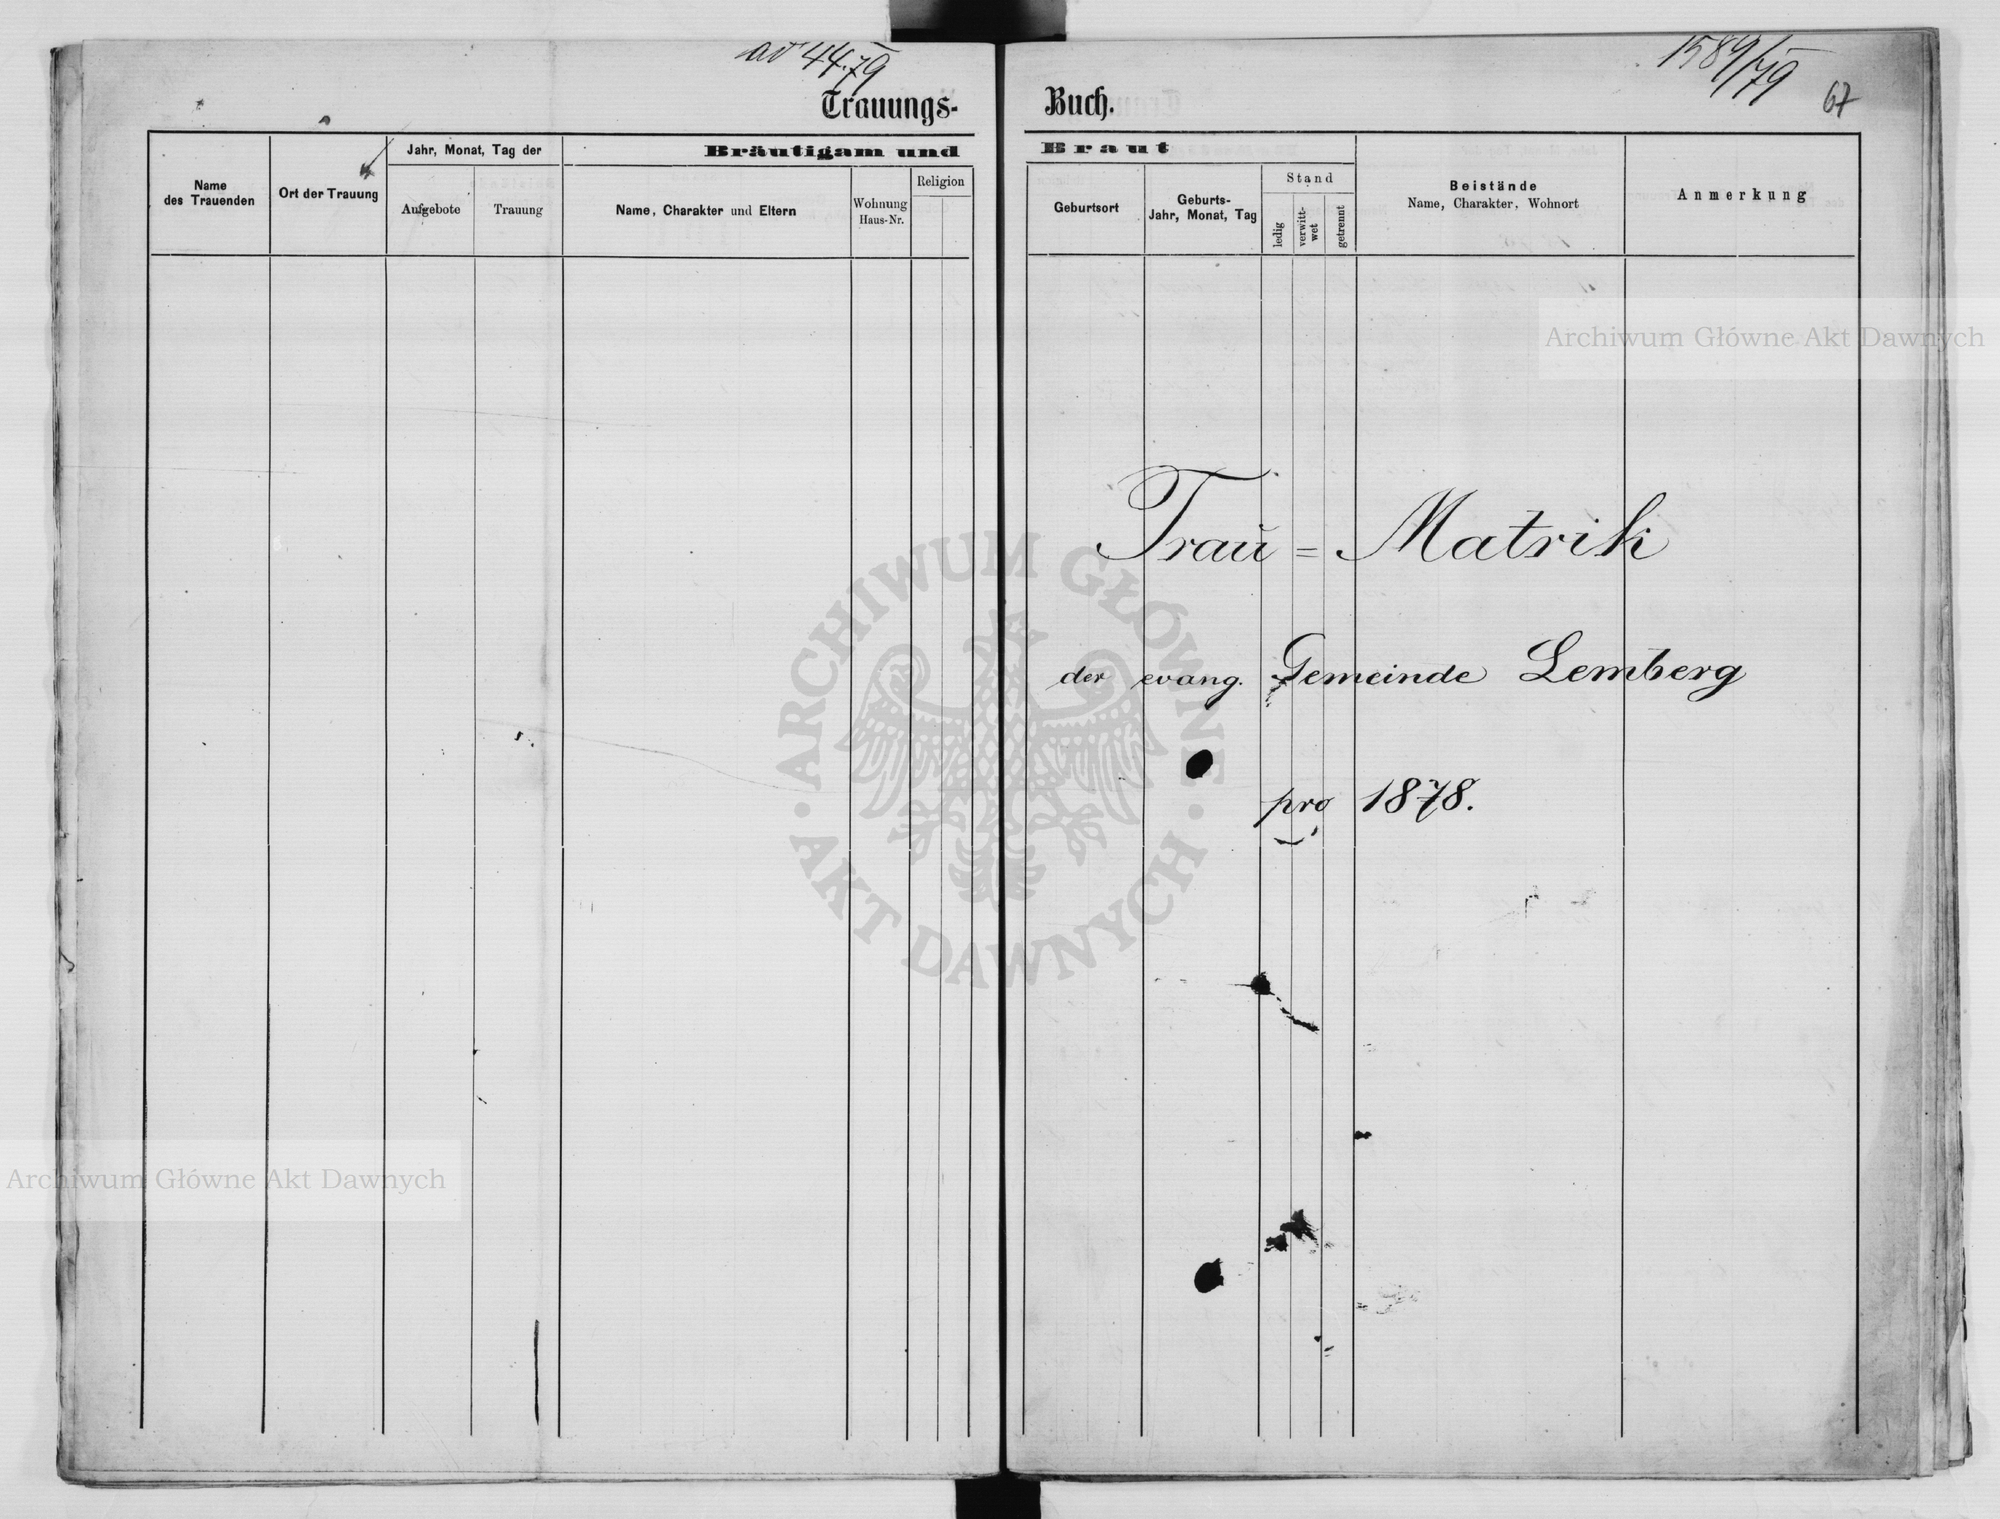 ad 44.79
Trauungs-
Name
des Trauenden
Ort der Trauung
Jahr, Monat, Tag der
Aufgebote
Trauung
Bräutigam und
Name, Charakter und Eltern
Wohnung
Haus-Nr.
Religion
1589/79
67
Buch.
Braut
Geburtsort
Geburts-
Jahr, Monat, Tag
Stand
ledig
verwitt-
wet
getrennt
Beistände
Name, Charakter, Wohnort
Anmerkung
Archiwum Główne Akt Dawnych
Trau = Matrik
der evang. Gemeinde Lemberg
pro 1878.
ARCHIWUM GŁÓWNE · AKT DAWNYCH ·
Archiwum Główne Akt Dawnych